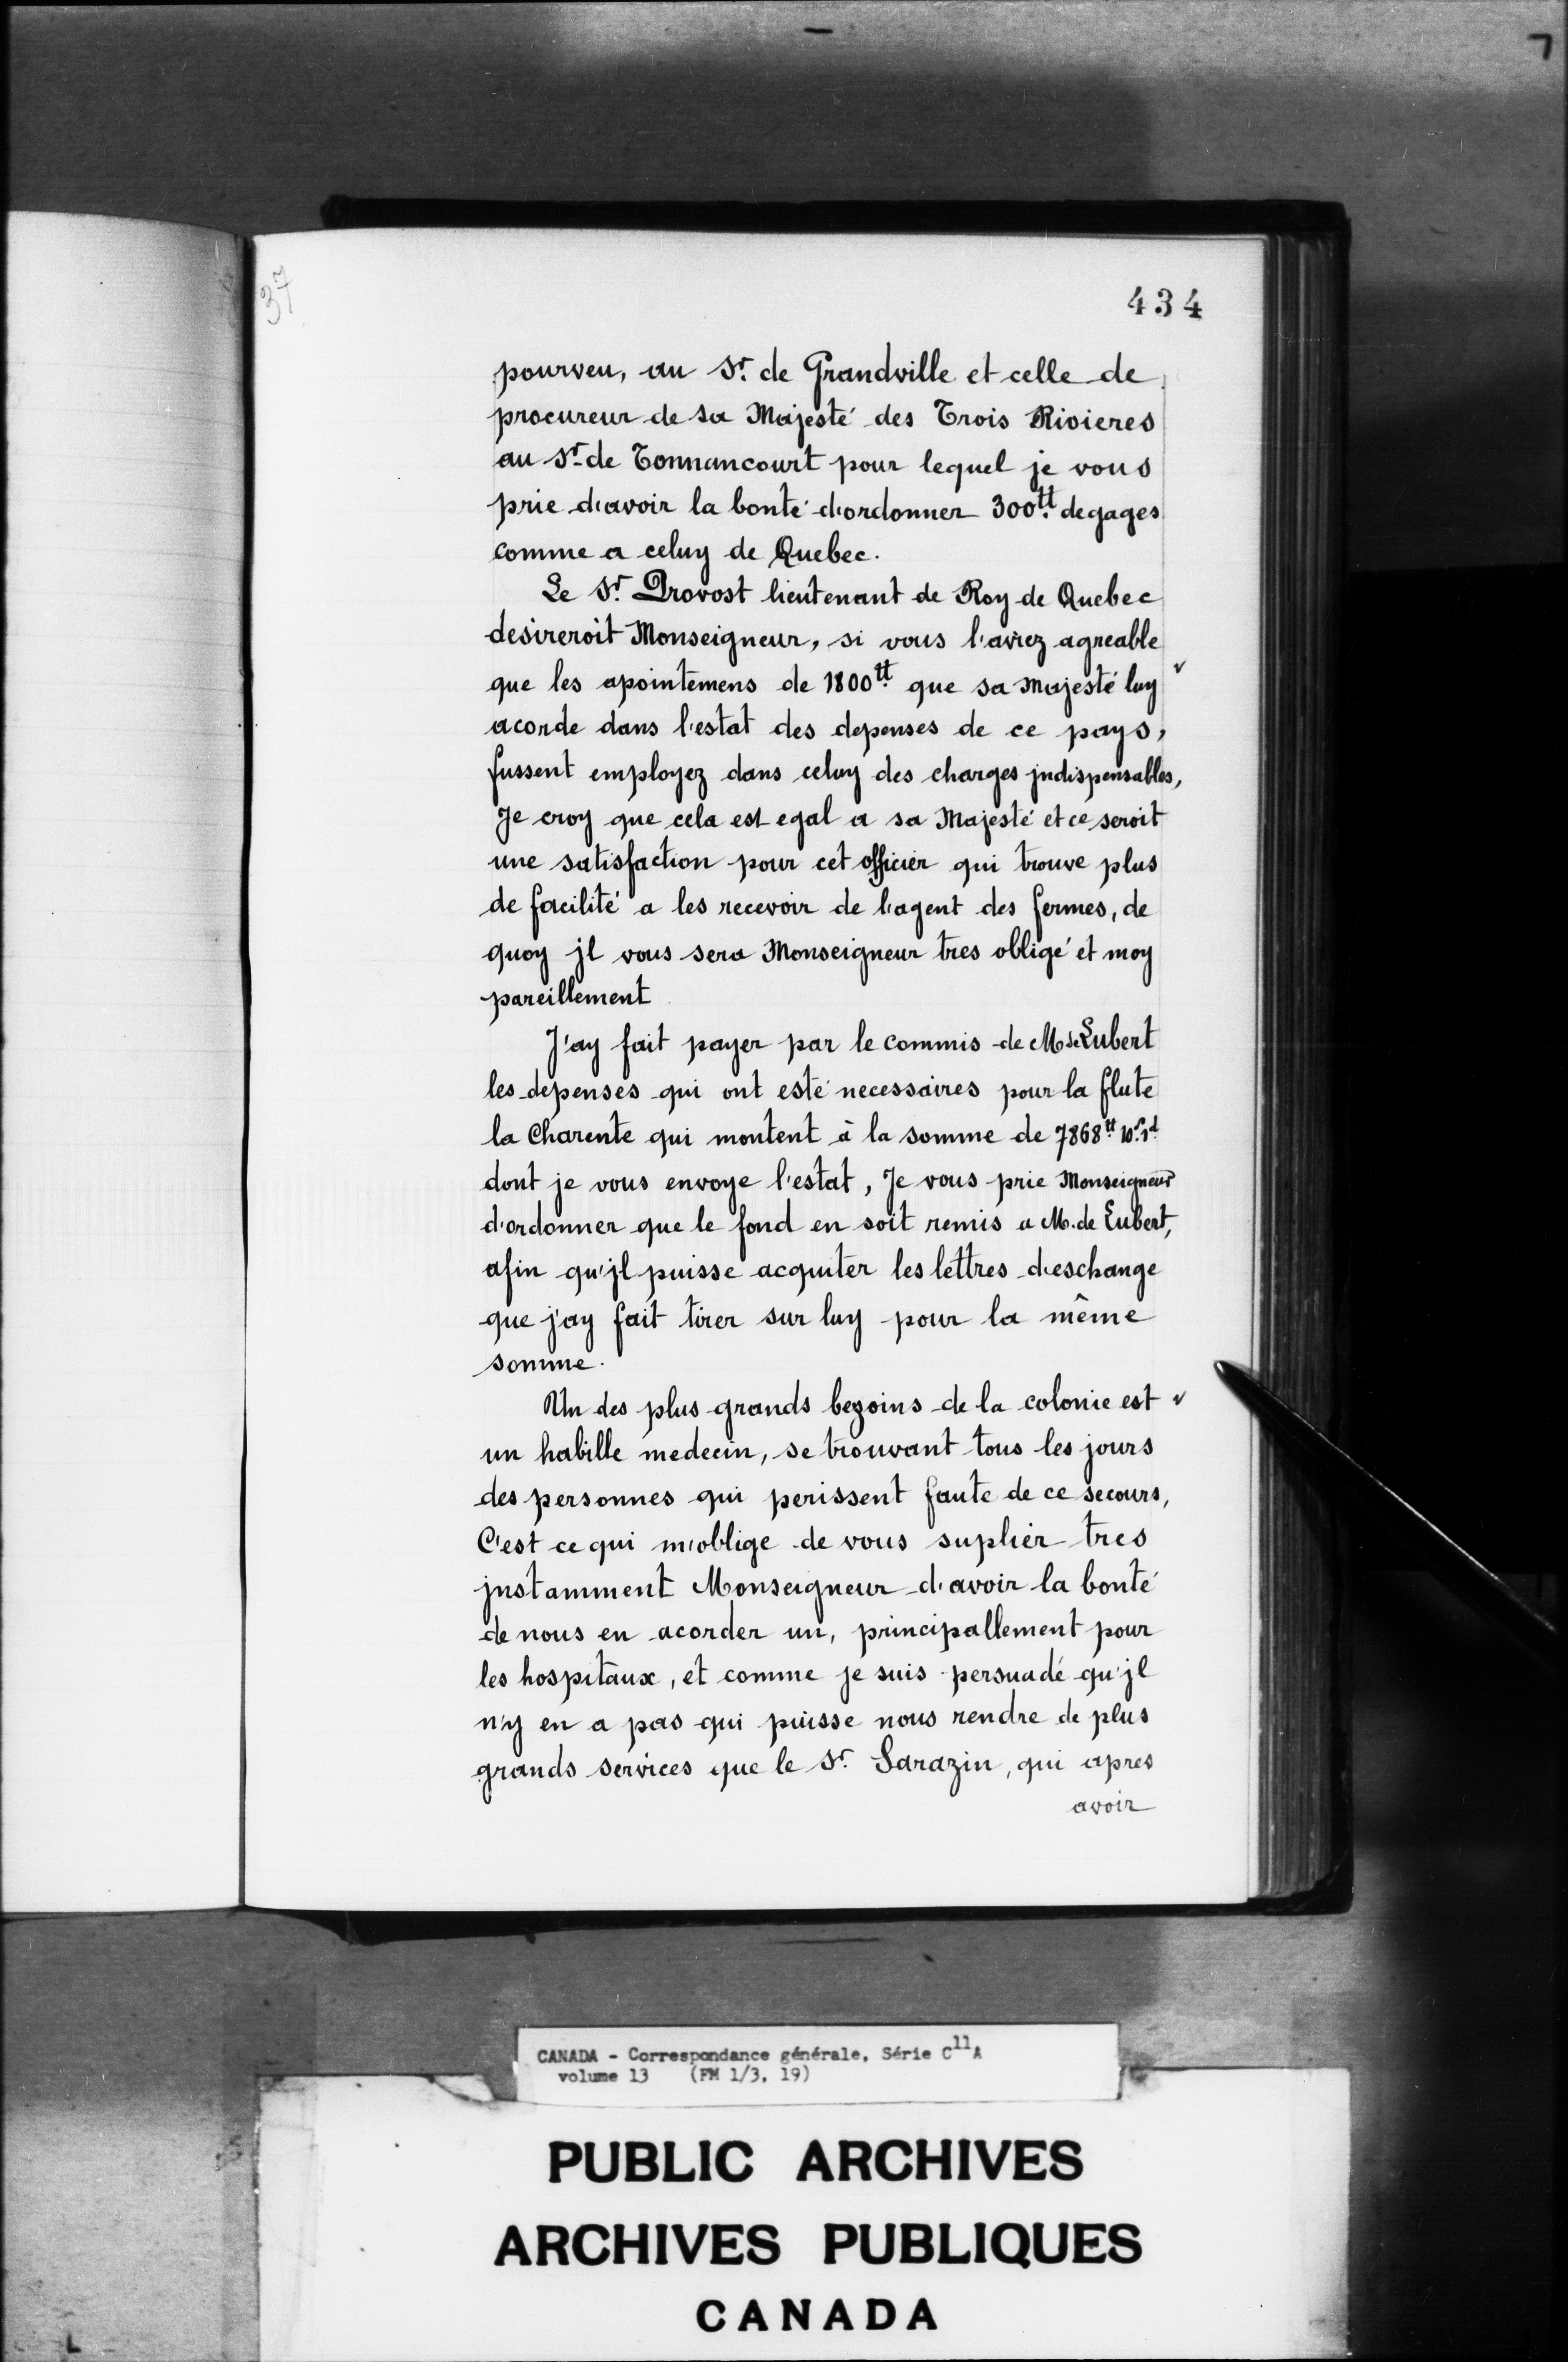 7
37
434
pourveu, au Sr. de Grandville et celle de
procureur de sa Majesté des Trois Rivieres
au Sr. de Tonnancourt pour lequel je vous
prie d'avoir la bonté d'ordonner 300tt. de gages
comme a celuy de Quebec.
Le Sr. Provost lieutenant de Roy de Quebec
desireroit Monseigneur, si vous l'aviez agreable
que les apointemens de 1800tt. que sa Majesté luy
acorde dans l'estat des depenses de ce pays,
fussent employez dans celuy des charges jndispensables,
Je croy que cela est egal a sa Majesté et ce seroit
une satisfaction pour cet officier qui trouve plus
de facilité a les recevoir de l'agent des fermes, de
quoy jl vous sera Monseigneur tres obligé et moy
pareillement
J'ay fait payer par le commis de M de Lubert
les depenses qui ont esté necessaires pour la flute
la Charente qui montent à la somme de 7868tt. 10s. 1d.
dont je vous envoye l'estat, Je vous prie Monseigneur
d'ordonner que le fond en soit remis a M. de Lubert,
afin qu'jl puisse acquiter les lettres d'eschange
que j'ay fait tirer sur luy pour la même
somme.
Un des plus grands bezoins de la colonie est
un habille medecin, se trouvant tous les jours
des personnes qui perissent faute de ce secours,
C'est ce qui m'oblige de vous suplier tres
jnstamment Monseigneur d'avoir la bonté
de nous en acorder un, principallement pour
les hospitaux, et comme je suis persuadé qu'jl
n'y en a pas qui puisse nous rendre de plus
grands services que le Sr. Sarazin, qui apres
avoir
CANADA - Correspondance générale, Série C11A
volume 13 (FM 1/3, 19)
PUBLIC ARCHIVES
ARCHIVES PUBLIQUES
CANADA